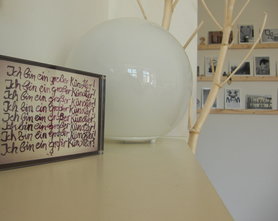 Ich bin ein großer Künstler!
Ich bin ein großer Künstler!
Ich bin ein großer Künstler!
Ich bin ein großer Künstler!
Ich bin ein großer Künstler!
Ich bin ein großer Künstler!
Ich bin ein großer Künstler!
Ich bin ein großer Künstler!